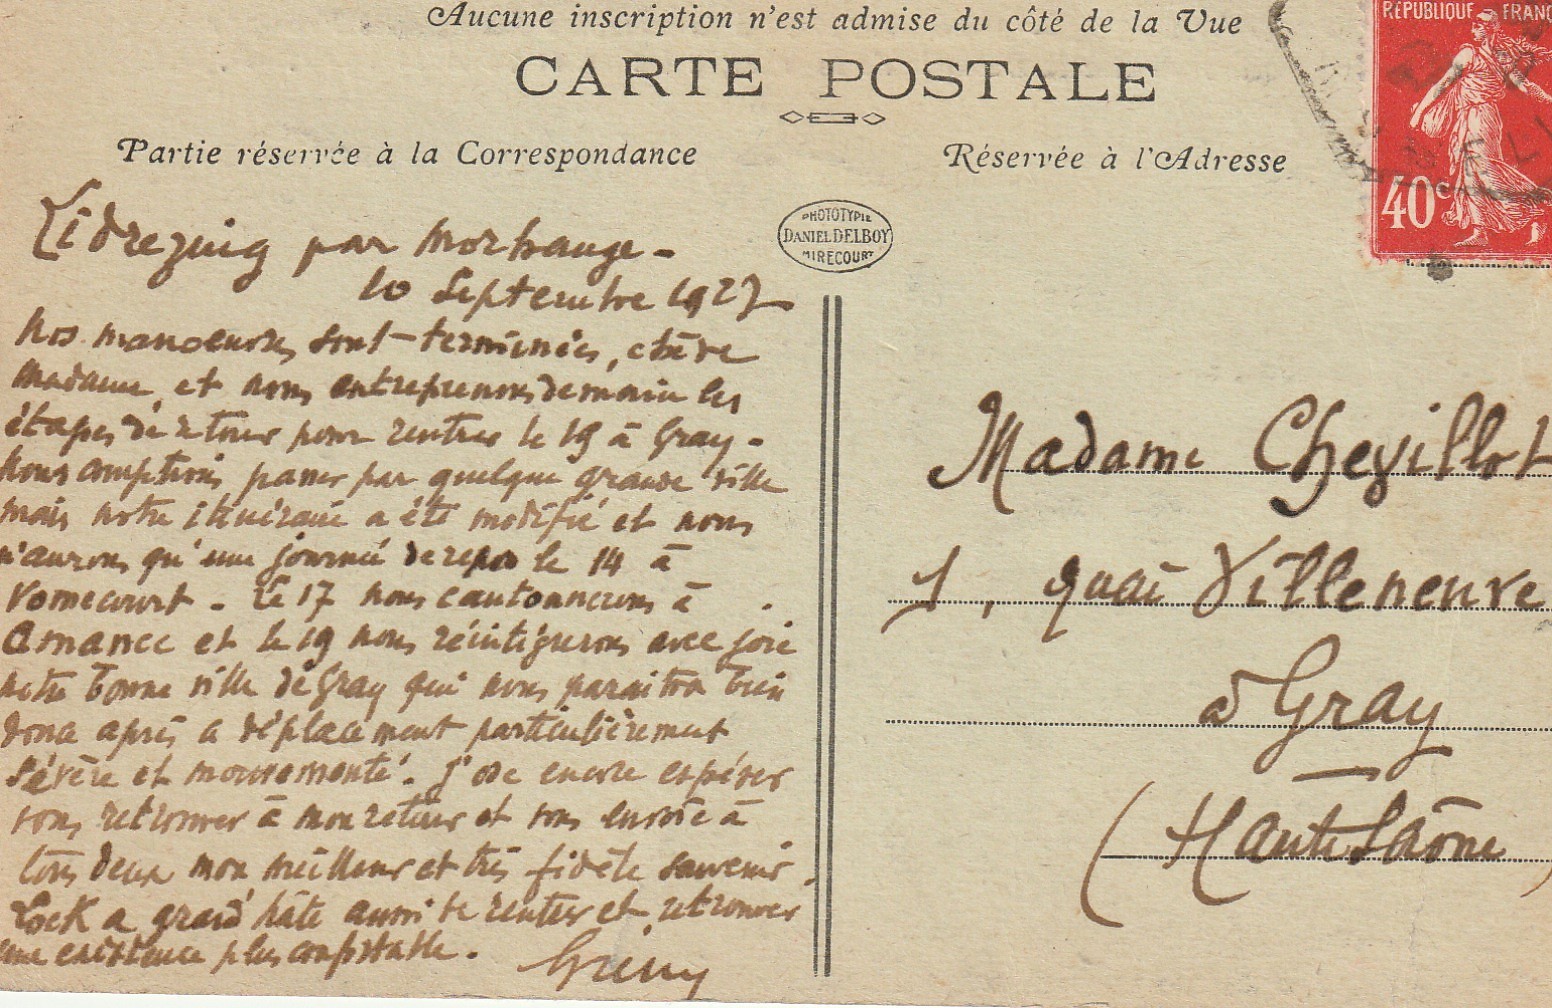 Aucune inscription n'est admise du côté de la Vue
CARTE POSTALE
Partie réservée à la Correspondance
Réservée à l'Adresse
RÉPUBLIQUE FRANÇ
40c
PHOTOTYPIE
DANIEL DELBOY
MIRECOURT
Lidrezing par Morhange -
10 Septembre 1927
Nos manoeuvres sont terminées, chère
Madame, et nous entreprenons demain les
étapes de retour pour rentrer le 19 à Gray -
Nous comptions passer par quelque grande ville
mais notre itinéraire a été modifié et nous
n'aurons qu'une journée de repos le 14 à
Vomécourt - Le 17 nous cantonnerons à
Amance et le 19 nous réintégrerons avec joie
notre bonne ville de Gray qui nous paraitra bien
douce après ce déplacement particulièrement
sévère et mouvementé. J'ose encore espérer
vous retrouver à mon retour et vous envoie à
tous deux mon meilleur et très fidèle souvenir.
Lock a grand hâte aussi de rentrer et retrouver
une existence plus confortable.
Madame Chevillot
1, quai Villeneuve
à Gray
(Haute Saône)